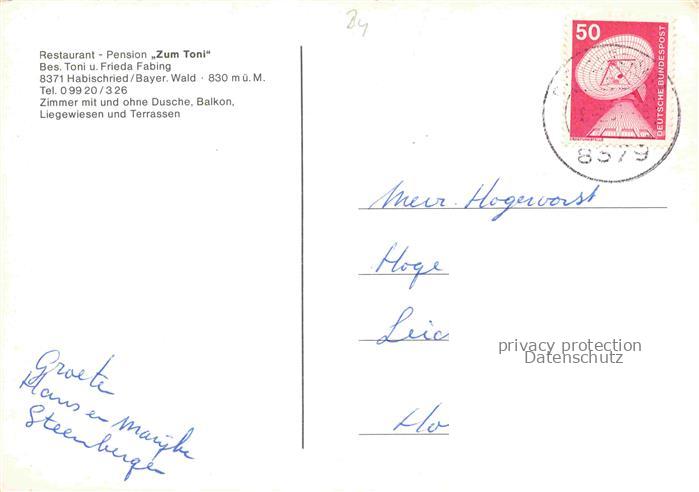 By
Restaurant - Pension „Zum Toni“
Bes. Toni u. Frieda Fabing
8371 Habischried/Bayer. Wald · 830 m ü. M.
Tel. 0 99 20 / 3 26
Zimmer mit und ohne Dusche, Balkon,
Liegewiesen und Terrassen
50
DEUTSCHE BUNDESPOST
8379
Mevr. Hogervorst
Hoge
Leid
Ho
privacy protection
Datenschutz
Groete
Hans en Marijke
Steenbergen